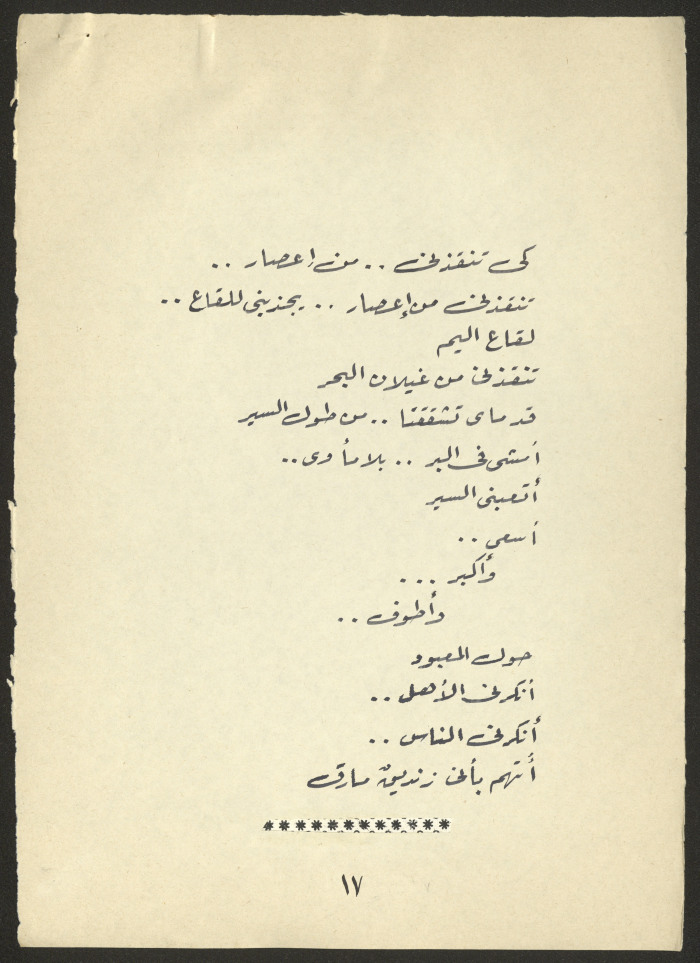 كى تنقذنى .. من إعصار ..
تنقذنى من إعصار .. يجذبنى للقاع ..
لقاع اليم
تنقذنى من غيلان البحر
قدماى تشققتا .. من طول السير
أمشى فى البر .. بلا مأوى ..
أتعبنى السير
أسعى ..
وأكبر ...
وأطوف ..
حول المعبود
أنكرنى الأهل ..
أنكرنى الناس ..
أُتهم بأنى زنديقٌ مارق
************
١٧